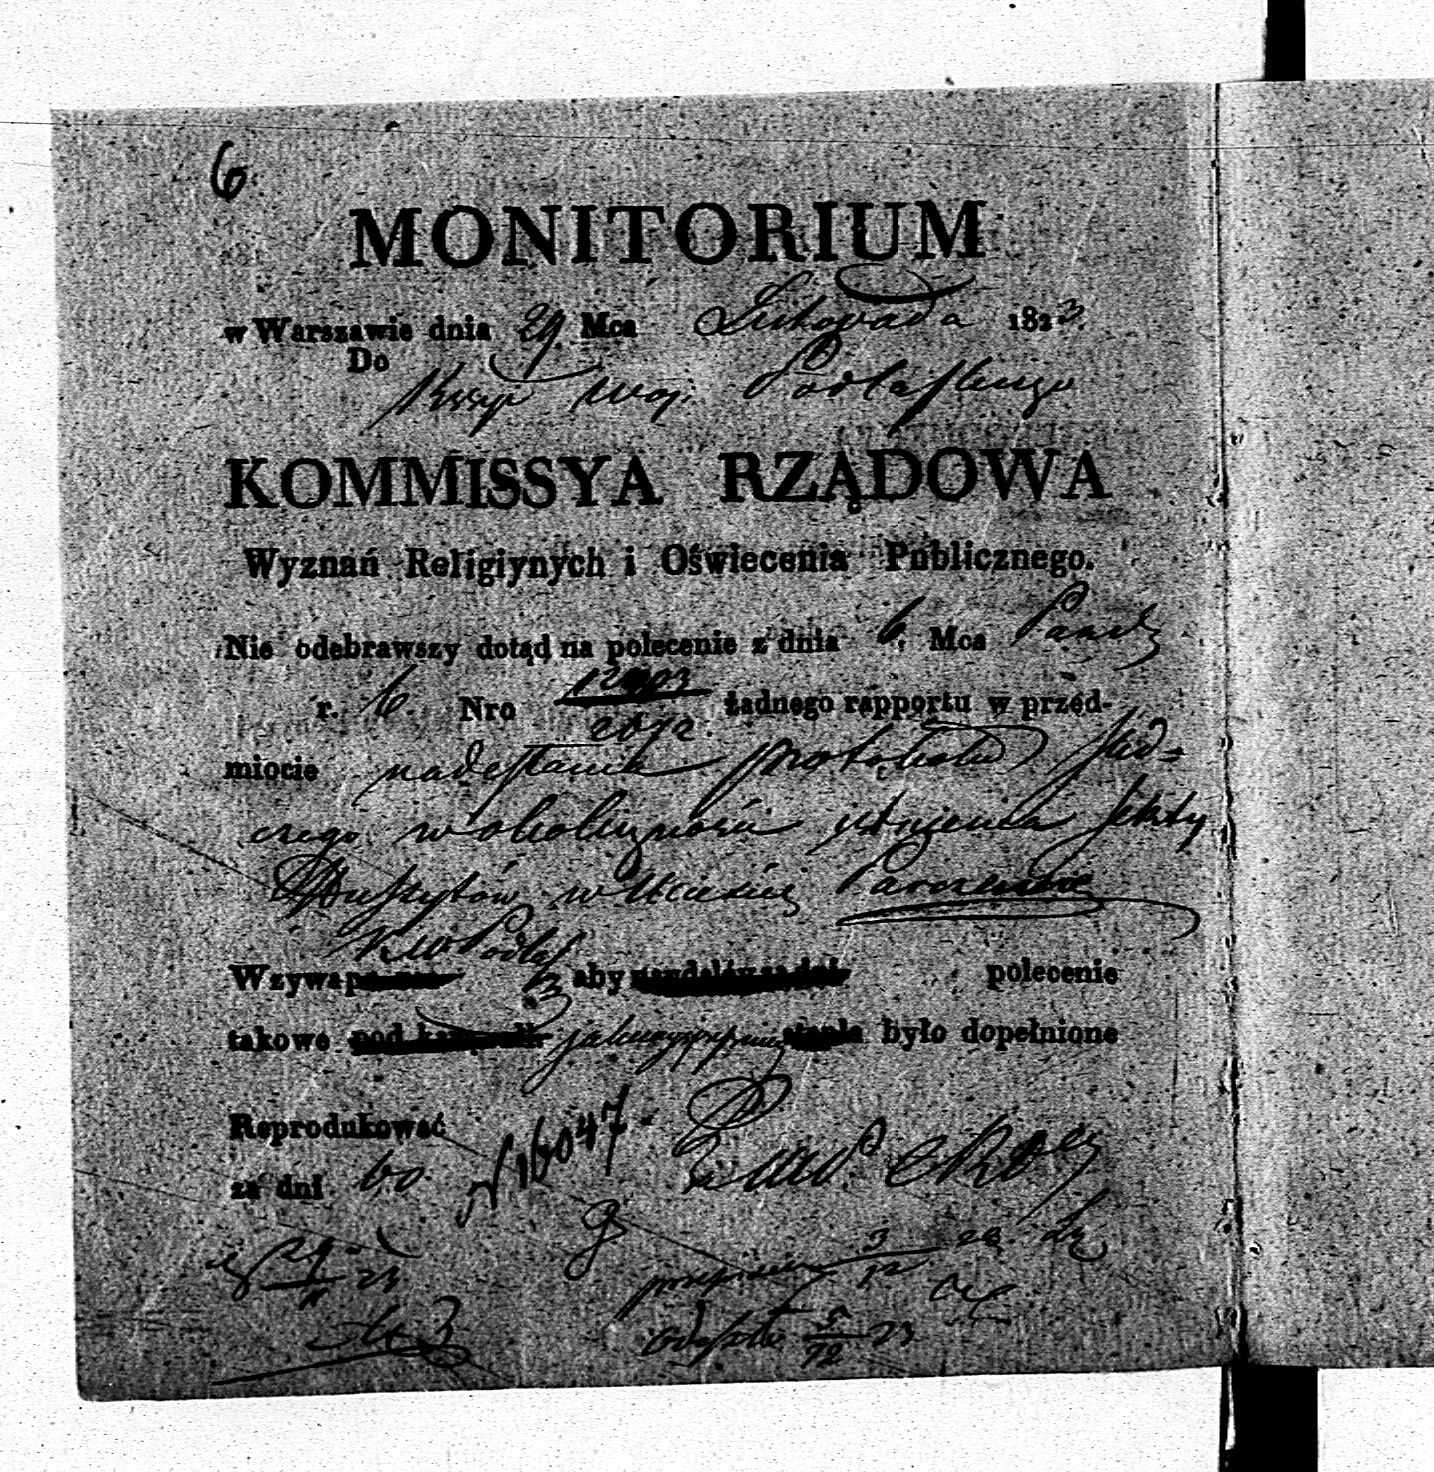 6
MONITORIUM
w Warszawie dnia 29 Mca Listopada 1823.
Do
Kssyi Woj. Podlaskiego
KOMMISSYA RZĄDOWA
Wyznań Religiynych i Oświecenia Publicznego.
Nie odebrawszy dotąd na polecenie z dnia 6. Mca Paźdz
r. b. Nro żadnego rapportu w przed-
miocie nadesłania protokołu śled=
czego w okoliczności istnienia sekty
w Mieście Parczewie
Wzywa aby polecenie
takowe było dopełnione
Reprodukować
za dni 60. N 16047.
29
11 23
3
12 23
odeszło 5
12 23